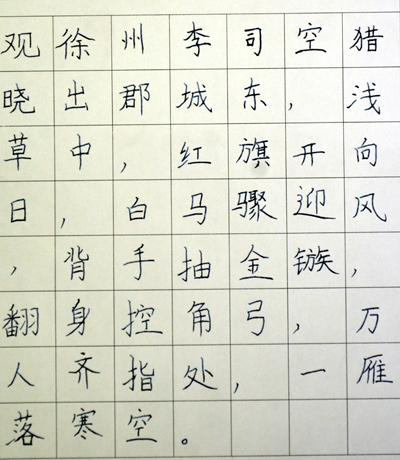 观徐州李司空猎
晓出郡城东,浅
草中,红旗开向
日,白马骤迎风
,背手抽金镞,
翻身控角弓,万
人齐指处,一雁
落寒空。